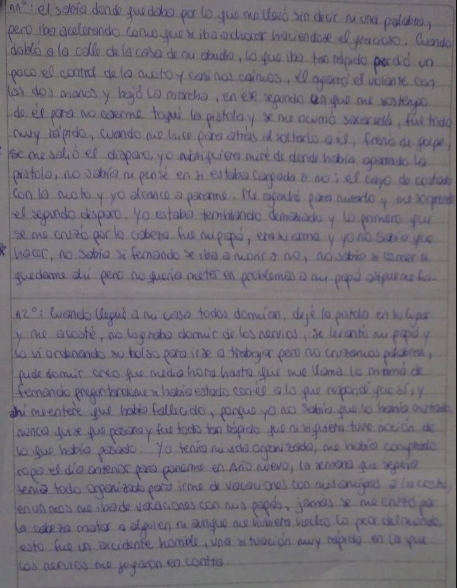 11°: él sabía donde quedaba por lo que me llevó sin decir ni una palabra,
pero iba acelerando como que se iba a chocar haciendose el gracioso. Cuando
dobló a la calle de la casa de mi abuelo, lo que iba tan rápido perdió un
poco el control de la moto y casi nos caímos, el agarró el volante con
las dos manos y bajó la marcha, en ese segundo en que me sostengo
de él para no caerme toqué la pistola y se me ocurrió sacarsela, fue todo
muy rápido, cuando me hice para atrás al soltarlo a él, frenó de golpe,
se me salió el disparo, yo ni siquiera miré de donde había agarrado la
pistola, no sabía ni pensé en si estaba cargada o no; él cayó de costado
con la moto y yo alcancé a pararme. Me agaché para mirarlo y me sorprende
el segundo disparo. Yo estaba temblando demasiado y lo primero que
se me cruzó por la cabeza fue mi papá, era su arma y yo no sabía que
hacer, no sabía si fernando se iba a morir o no, no sabía si correr o
quedarme ahí pero no quería meter en problemas a mi papá asique me fui.
12°: Cuando llegué a mi casa todos dormían, dejé la pistola en su lugar
y me acosté, no lograba dormir de los nervios, se levantó mi papá y
lo vi ordenando su bolso para irse a trabajar pero no cruzamos palabras,
pude dormir creo que media hora hasta que me llama la mamá de
fernando preguntandome si había estado con él a lo que respondí que sí, y
ahí me enteré que había fallecido, porque yo no sabía que lo había matado
nunca quise que pasara y fue todo tan rápido que ni siquiera tuve noción de
lo que había pasado. Yo tenía mi vida organizada, me había comprado
ropa el día anterior para ponerme en Año nuevo, la semana que seguía
tenía todo organizado para irme de vacaciones con mis amigas a la costa,
en un mes me iba de vacaciones con mis papás, jamás se me cruzó por
la cabeza matar a alguien ni aunque me hubiera hecho lo peor del mundo
esto fue un accidente horrible, una situación muy rápida en la que
los nervios me jugaron en contra.